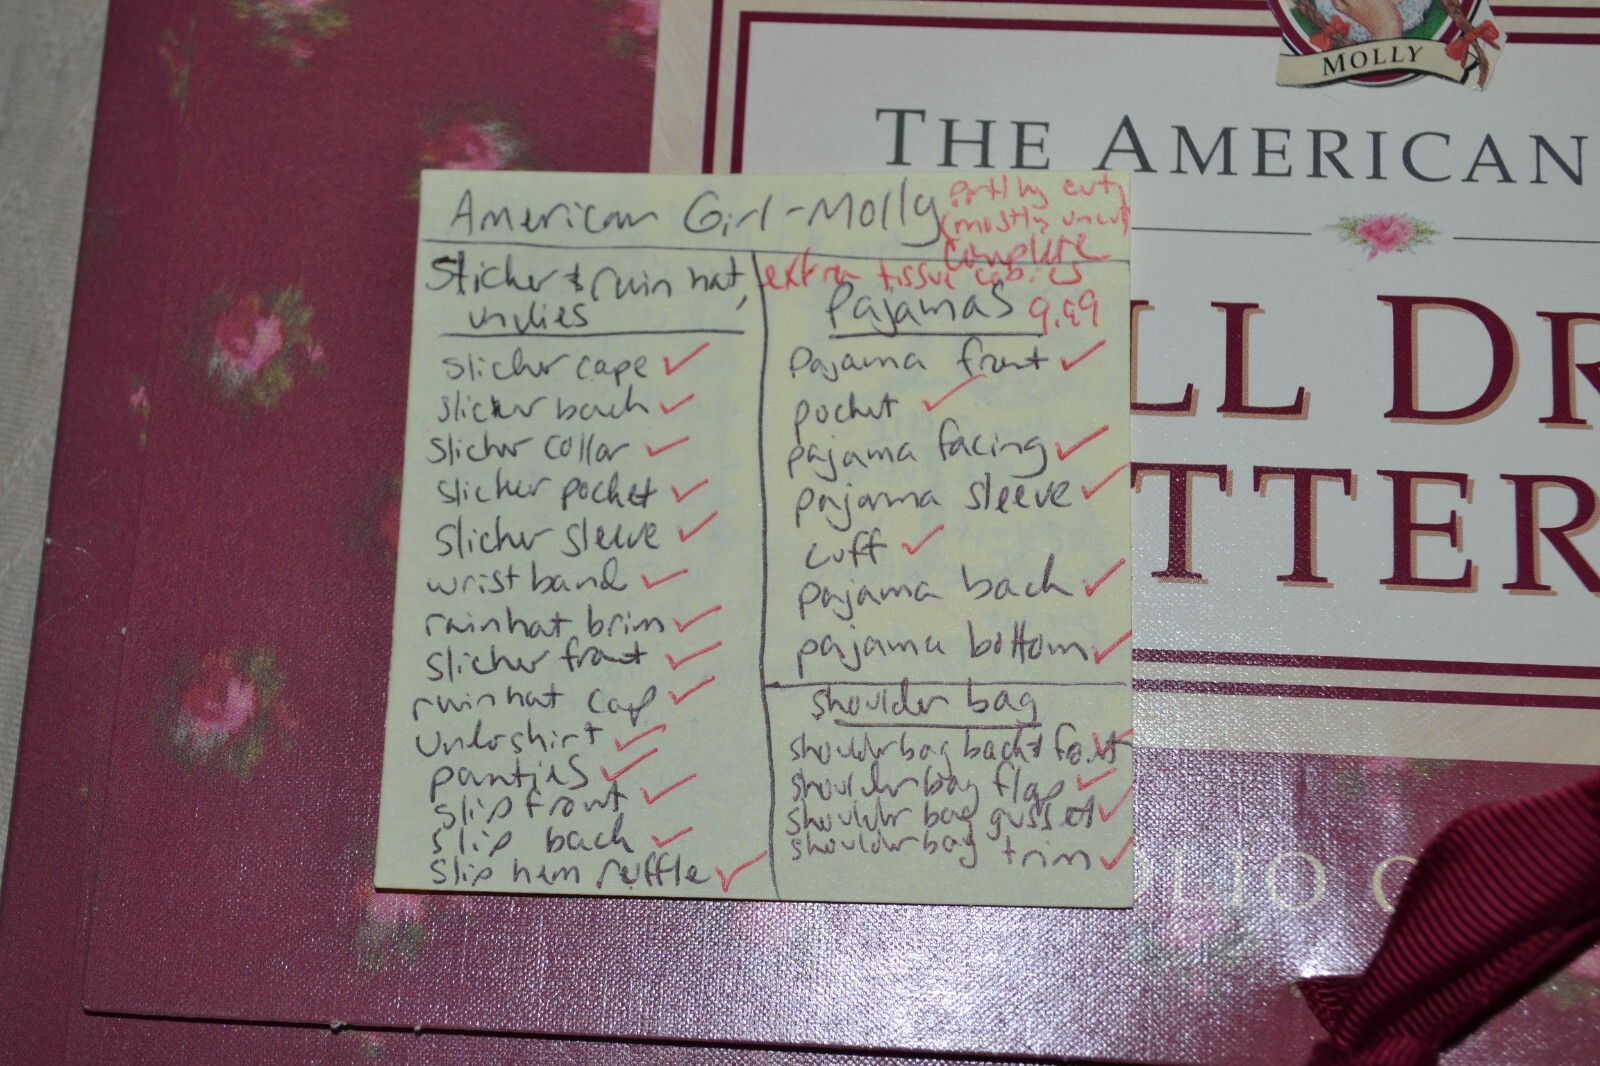 MOLLY
THE AMERICAN
LL DR
TTER
LIO
American Girl-Molly
partly cut,
(mostly uncut)
complete
extra tissue copies
9.99
Slicker & rain hat,
undies
slicker cape ✓
slicker back ✓
slicker collar ✓
slicker pocket ✓
slicker sleeve ✓
wrist band ✓
rainhat brim ✓
slicker front ✓
rainhat cap ✓
undershirt ✓
panties ✓
slip front ✓
slip back ✓
slip hem ruffle ✓
Pajamas
pajama front ✓
pocket ✓
pajama facing ✓
pajama sleeve ✓
cuff ✓
pajama back ✓
pajama bottom ✓
shoulder bag
shoulder bag back & front ✓
shoulder bag flap ✓
shoulder bag gusset ✓
shoulder bag trim ✓